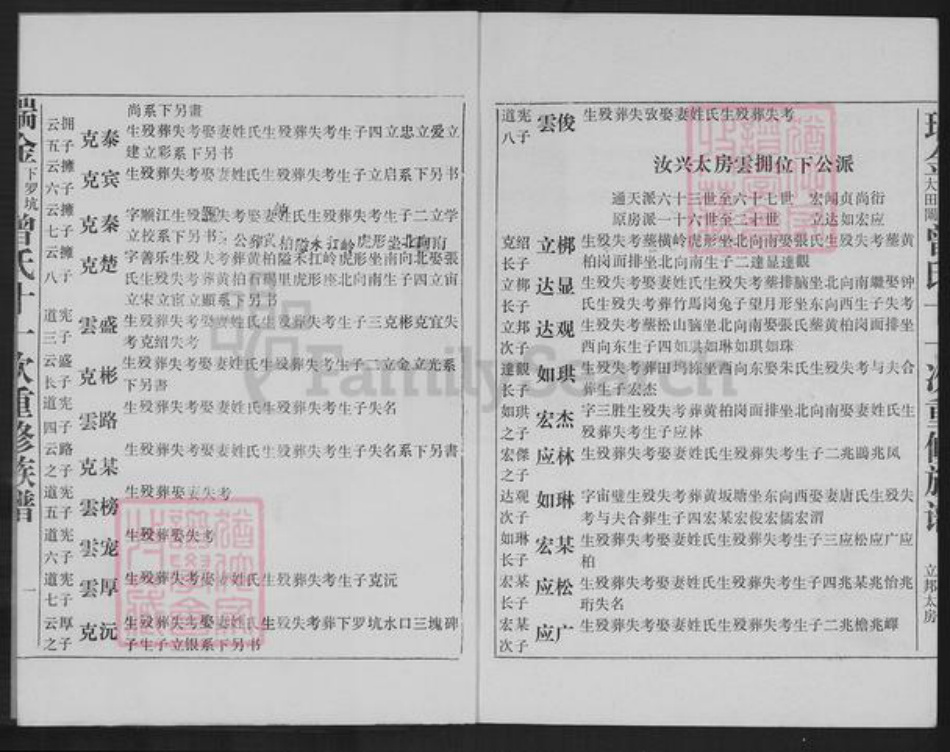 尚系下另畫
云拥五子 克泰 生殁葬失考娶妻姓氏生殁葬失考生子四立忠立爱立
建立彩系下另书
云擁六子 克宾 生殁葬失考娶妻姓氏生殁葬失考生子立启系下另书
云擁七子 克秦 字顺江生殁葬失考娶妻姓氏生殁葬失考生子二立学
立校系下另书
云擁八 克楚 字善乐生殁失考葬黄柏隘禾扛岭虎形坐南向北娶張
氏生殁失考葬黄柏陽里虎形座北向南生子四立宙
立宋立宦立顯系下另书
道宪三子 雲盛 生殁葬失考娶妻姓氏生殁葬失考生子三克彬克宜失
考克绍失考
云盛长子 克彬 生殁葬失考娶妻姓氏生殁葬失考生子二立金立光系
下另書
道宪四子 雲路 生殁葬失考娶妻姓氏生殁葬失考生子失名
云路之子 克某 生殁葬失考娶妻姓氏生殁葬失考生子失名系下另書
道宪五子 雲榜 生殁葬娶妻失考
道宪六子 雲宠 生殁葬娶失考
道宪七子 雲厚 生殁葬失考娶妻姓氏生殁葬失考生子克沅
云厚之子 克沅 生殁葬失考娶妻姓氏生殁失考葬下罗坑水口三塊碑
子生子立银系下另书
瑞金下罗坑曾氏十一次重修族譜
一
道宪八子 雲俊 生殁葬失攷娶妻姓氏生殁葬失考
汝兴太房雲拥位下公派
通天派六十三世至六十七世 宏闻贞尚衍
原房派一十六世至二十世 立达如宏应
克绍长子 立梆 生殁失考墓横岭虎形坐北向南娶張氏生殁失考墓黄
柏岗面排坐北向南生子二達显達觀
立梆长子 达显 生殁失考娶妻姓氏生殁失考葬排脑坐北向南繼娶钟
氏生殁失考葬竹馬岗兔子望月形坐东向西生子失考
立邦次子 达观 生殁失考墓松山脑坐北向南娶張氏墓黄柏岗面排坐
西向东生子四如珙如琳如琪如珠
達觀长子 如珙 生殁失考葬田坞栋坐西向东娶朱氏生殁失考与夫合
葬生子宏杰
如珙之子 宏杰 字三胜生殁失考葬黄柏岗面排坐北向南娶妻姓氏生
殁葬失考生子应林
宏傑之子 应林 生殁葬失考娶妻姓氏生殁葬失考生子二兆鵰兆凤
达观次子 如琳 字宙璧生殁失考葬黄坂塘坐东向西娶妻唐氏生殁失
考与夫合葬生子四宏某宏俊宏儒宏渭
如琳长子 宏某 生殁葬失考娶妻姓氏生殁葬失考生子三应松应广应
柏
宏某长子 应松 生殁葬失考娶妻姓氏生殁葬失考生子四兆某兆怡兆
珩失名
宏某次子 应广 生殁葬失考娶妻姓氏生殁葬失考生子二兆檐兆嶂
立邦太房
FamilySearch